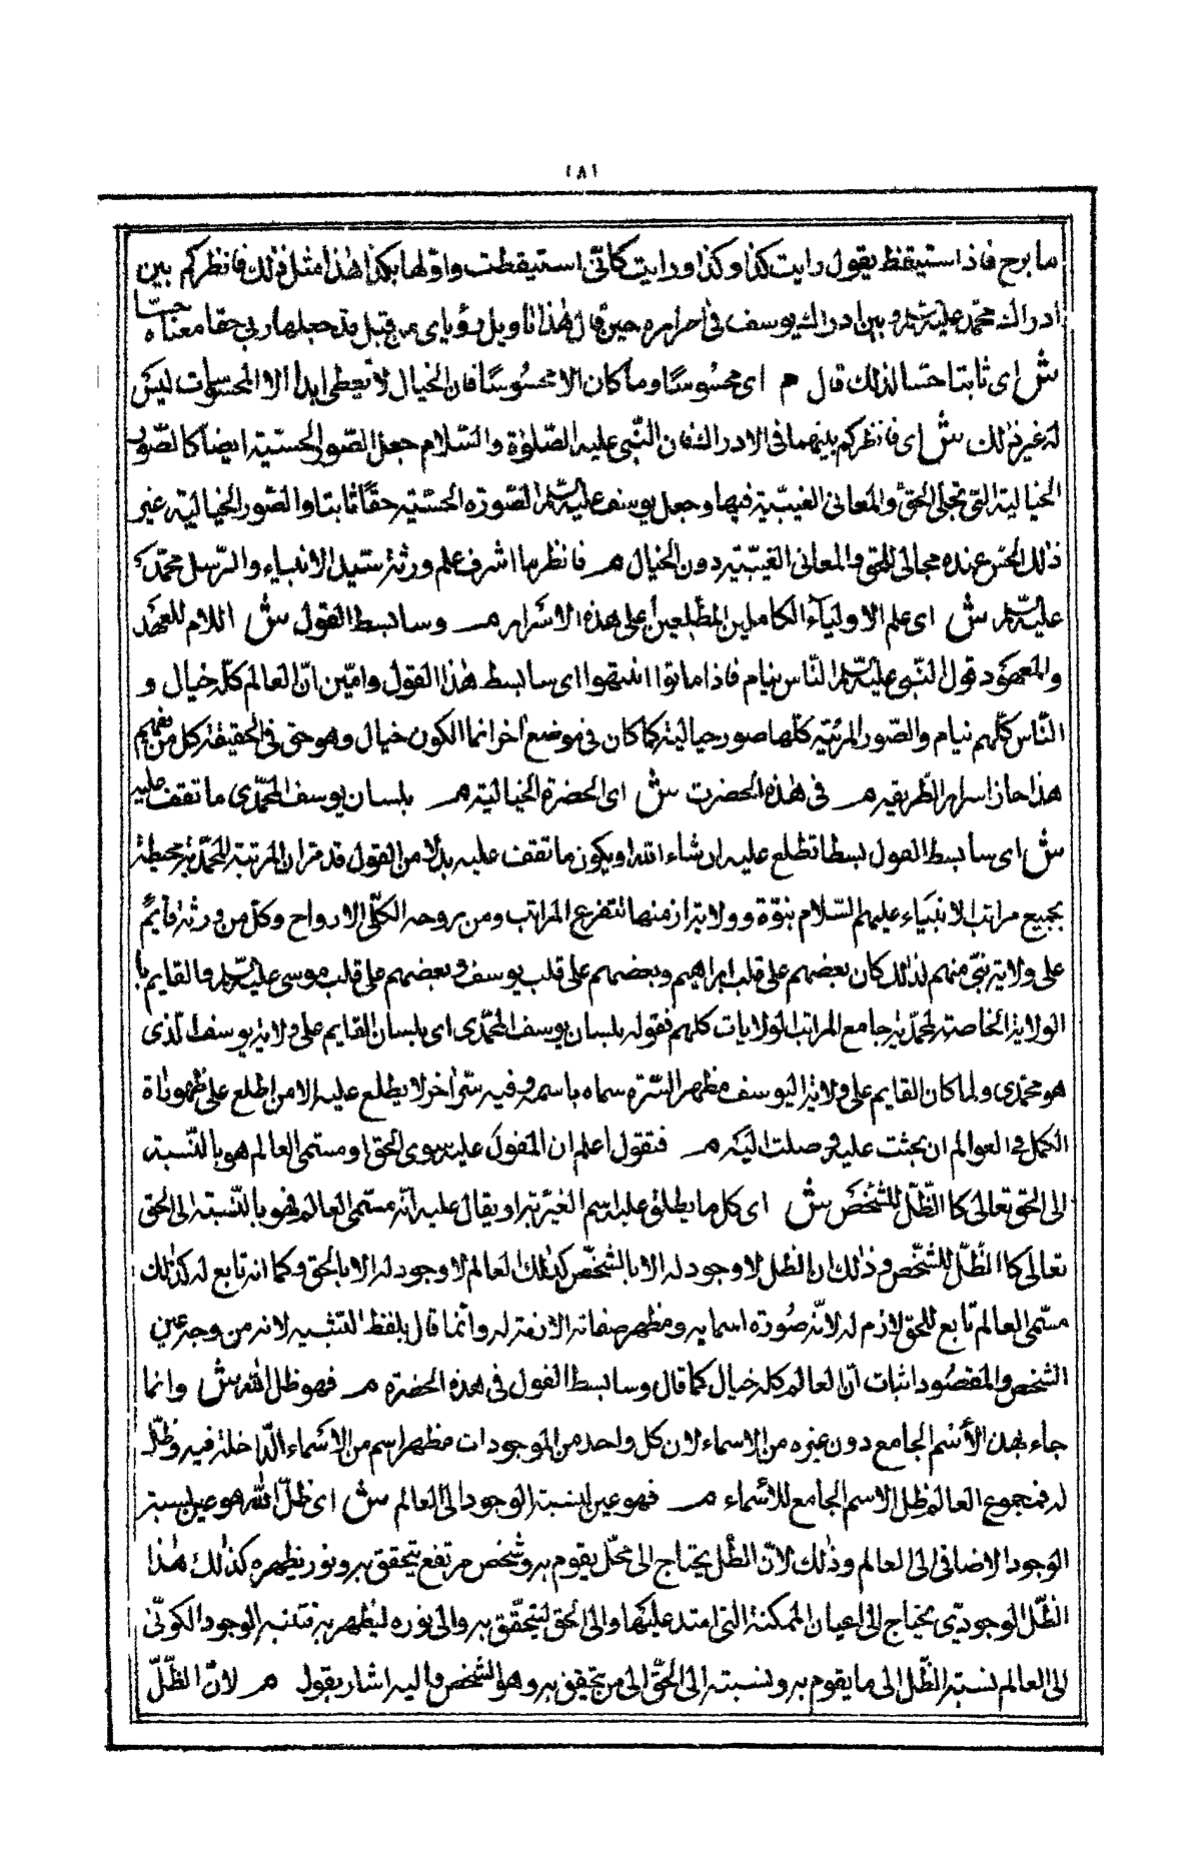 ١٨١
ما برح فاذا استيقظ يقول رايت كذا وكذا ورايت كاني استيقظت واولها بكذا هذا مثل ذلك فانظركم بين
ادراك محمد عليه السلام وبين ادراك يوسف في آخر امره حين قال هذا تاويل رؤياى من قبل قد جعلها ربي حقا معناه حسا
ش اى ثابتا حسا لذلك قال م اى محسوسا وما كان الا محسوسا فان الخيال لا يعطى ابدا الا المحسوسات ليس
له غير ذلك ش اى فانظركم بينهما في الادراك فان النبى عليه الصلوة والسلام جعل الصور الحسية ايضا كالصور
الخيالية التى تجلى الحق والمعانى الغيبية فيها وجعل يوسف عليه السلام الصورة الحسية حقا ثابتا والصور الخيالية غير
ذلك الحس عنده مجالى للحق والمعانى الغيبية دون الخيال م فانظر ما اشرف علم ورثة سيد الانبياء والرسل محمد
عليه السلام ش اى علم الاولياء الكاملين المطلعين على هذه الاسرار م وسابسط القول ش اللام للعهد
والمعهود قول النبى عليه السلام الناس نيام فاذا ماتوا انتبهوا اى سابسط هذا القول وابين ان العالم كله خيال و
الناس كلهم نيام والصور المرئية كلها صور خيالية كما كان في موضع آخر انما الكون خيال وهو حق في الحقيقة كل من يفهم
هذا حاز اسرار الطريقه م في هذه الحضرت ش اى الحضرة الخيالية م بلسان يوسف المحمدى ما تقف عليه
ش اى سابسط القول بسطا تطلع عليه ان شاء الله او يكون ما تقف عليه بدلا من القول قد مر ان المرتبة المحمدية محيطة
بجميع مراتب الانبياء عليهم السلام نبوة وولاية اذ منها تتفرع المراتب ومن روحه الكلى الارواح وكل من ورثه قايم
على ولاية نبى منهم لذلك كان بعضهم على قلب ابراهيم وبعضهم على قلب يوسف وبعضهم على قلب موسى عليه السلام والقايم با
لولاية الخاصة المحمدية جامع المراتب الولايات كلهم فقوله بلسان يوسف المحمدى اى بلسان القايم على ولاية يوسف الذى
هو محمدى ولما كان القايم على ولاية اليوسف مظهر السره سماه باسمه وفيه سر آخر لا يطلع عليه الا من اطلع على ظهورات
الكمل في العوالم ان بحثت عليه وصلت اليه م فنقول اعلم ان المقول عليه سوى الحق او مسمى العالم هو بالنسبة
الى الحق تعالى كا الظل للشخص ش اى كل ما يطلق عليه اسم الغيرية او يقال عليه انه مسمى العالم فهو بالنسبة الى الحق
تعالى كا الظل للشخص وذلك ان الظل لا وجود له الا بالشخص كذلك العالم لا وجود له الا بالحق وكما انه تابع له كذلك
مسمى العالم تابع للحق لازم له لانه صورة اسمايه ومظهر صفاته الازمة له وانما قال بلفظ التشبيه لانه من وجه عين
الشخص والمقصود اثبات ان العالم كله خيال كما قال وسابسط القول في هذه الحضرة م فهو ظل الله ش وانما
جاء بهذا الاسم الجامع دون غيره من الاسماء لان كل واحد من الموجودات مظهر اسم من الاسماء الداخلة فيه وظل
له فمجموع العالم ظل الاسم الجامع للاسماء م فهو عين نسبة الوجود الى العالم ش اى ظل الله هو عين نسبة
الوجود الاضافى الى العالم وذلك لان الظل يحتاج الى محل يقوم به وشخص مرتفع يتحقق به ونور يظهره كذلك هذا
الظل الوجودى يحتاج الى اعيان الممكنة التى امتد عليها والى الحق ليتحقق به والى نوره ليظهر به فتنسبه الوجود الكونى
الى العالم نسبة الظل الى ما يقوم به ونسبته الى الحق الى من يتحقق به وهو الشخص واليه اشار بقول م لان الظل